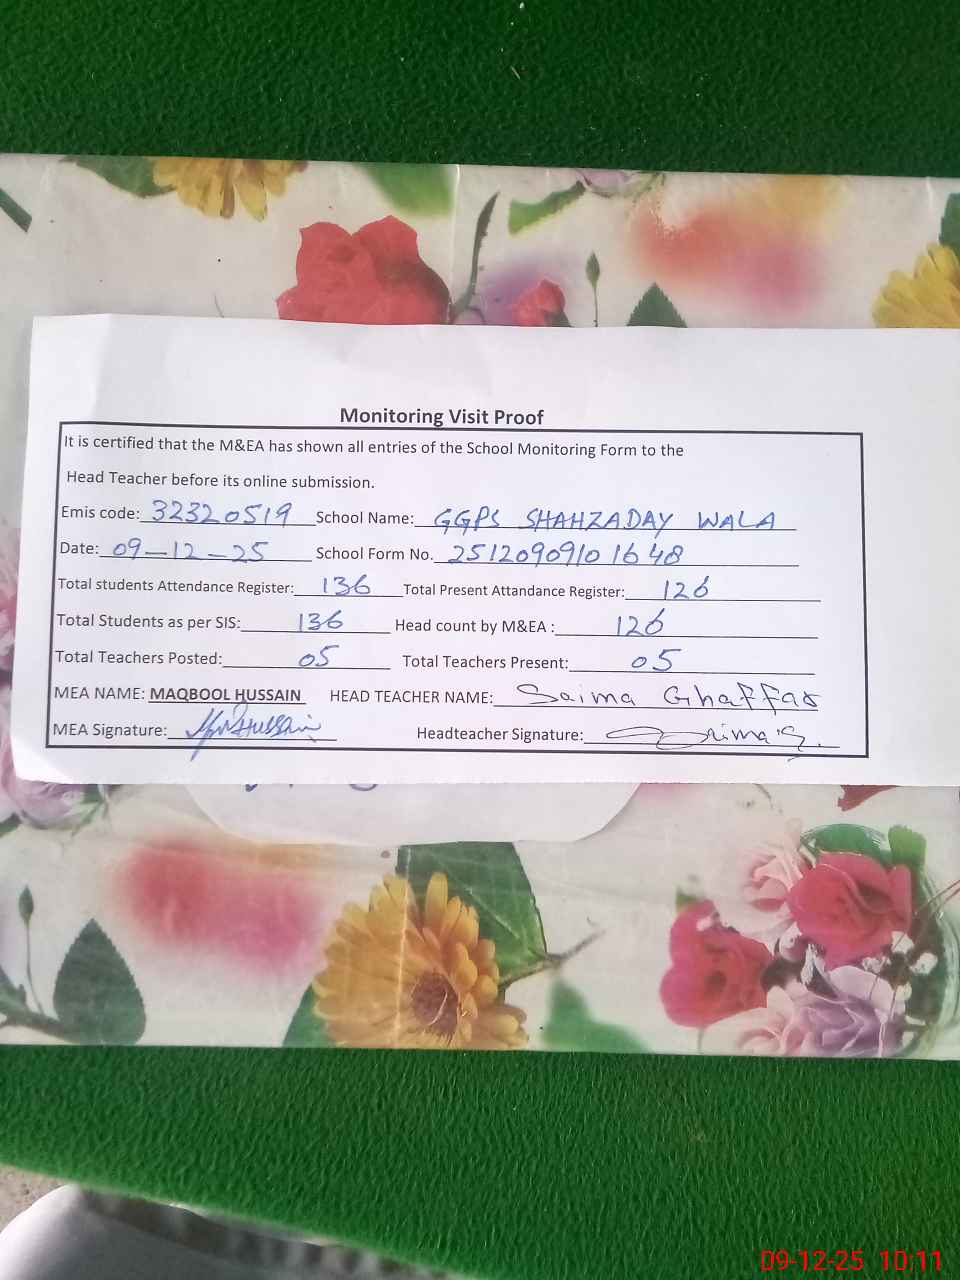 Monitoring Visit Proof
It is certified that the M&EA has shown all entries of the School Monitoring Form to the
Head Teacher before its online submission.
Emis code: 32320519 School Name: GGPS SHAHZADAY WALA
Date: 09-12-25 School Form No. 2512090910 1648
Total students Attendance Register: 136 Total Present Attandance Register: 126
Total Students as per SIS: 136 Head count by M&EA : 126
Total Teachers Posted: 05 Total Teachers Present: 05
MEA NAME: MAQBOOL HUSSAIN HEAD TEACHER NAME: Saima Ghaffar
MEA Signature: Headteacher Signature:
09-12-25 10:11